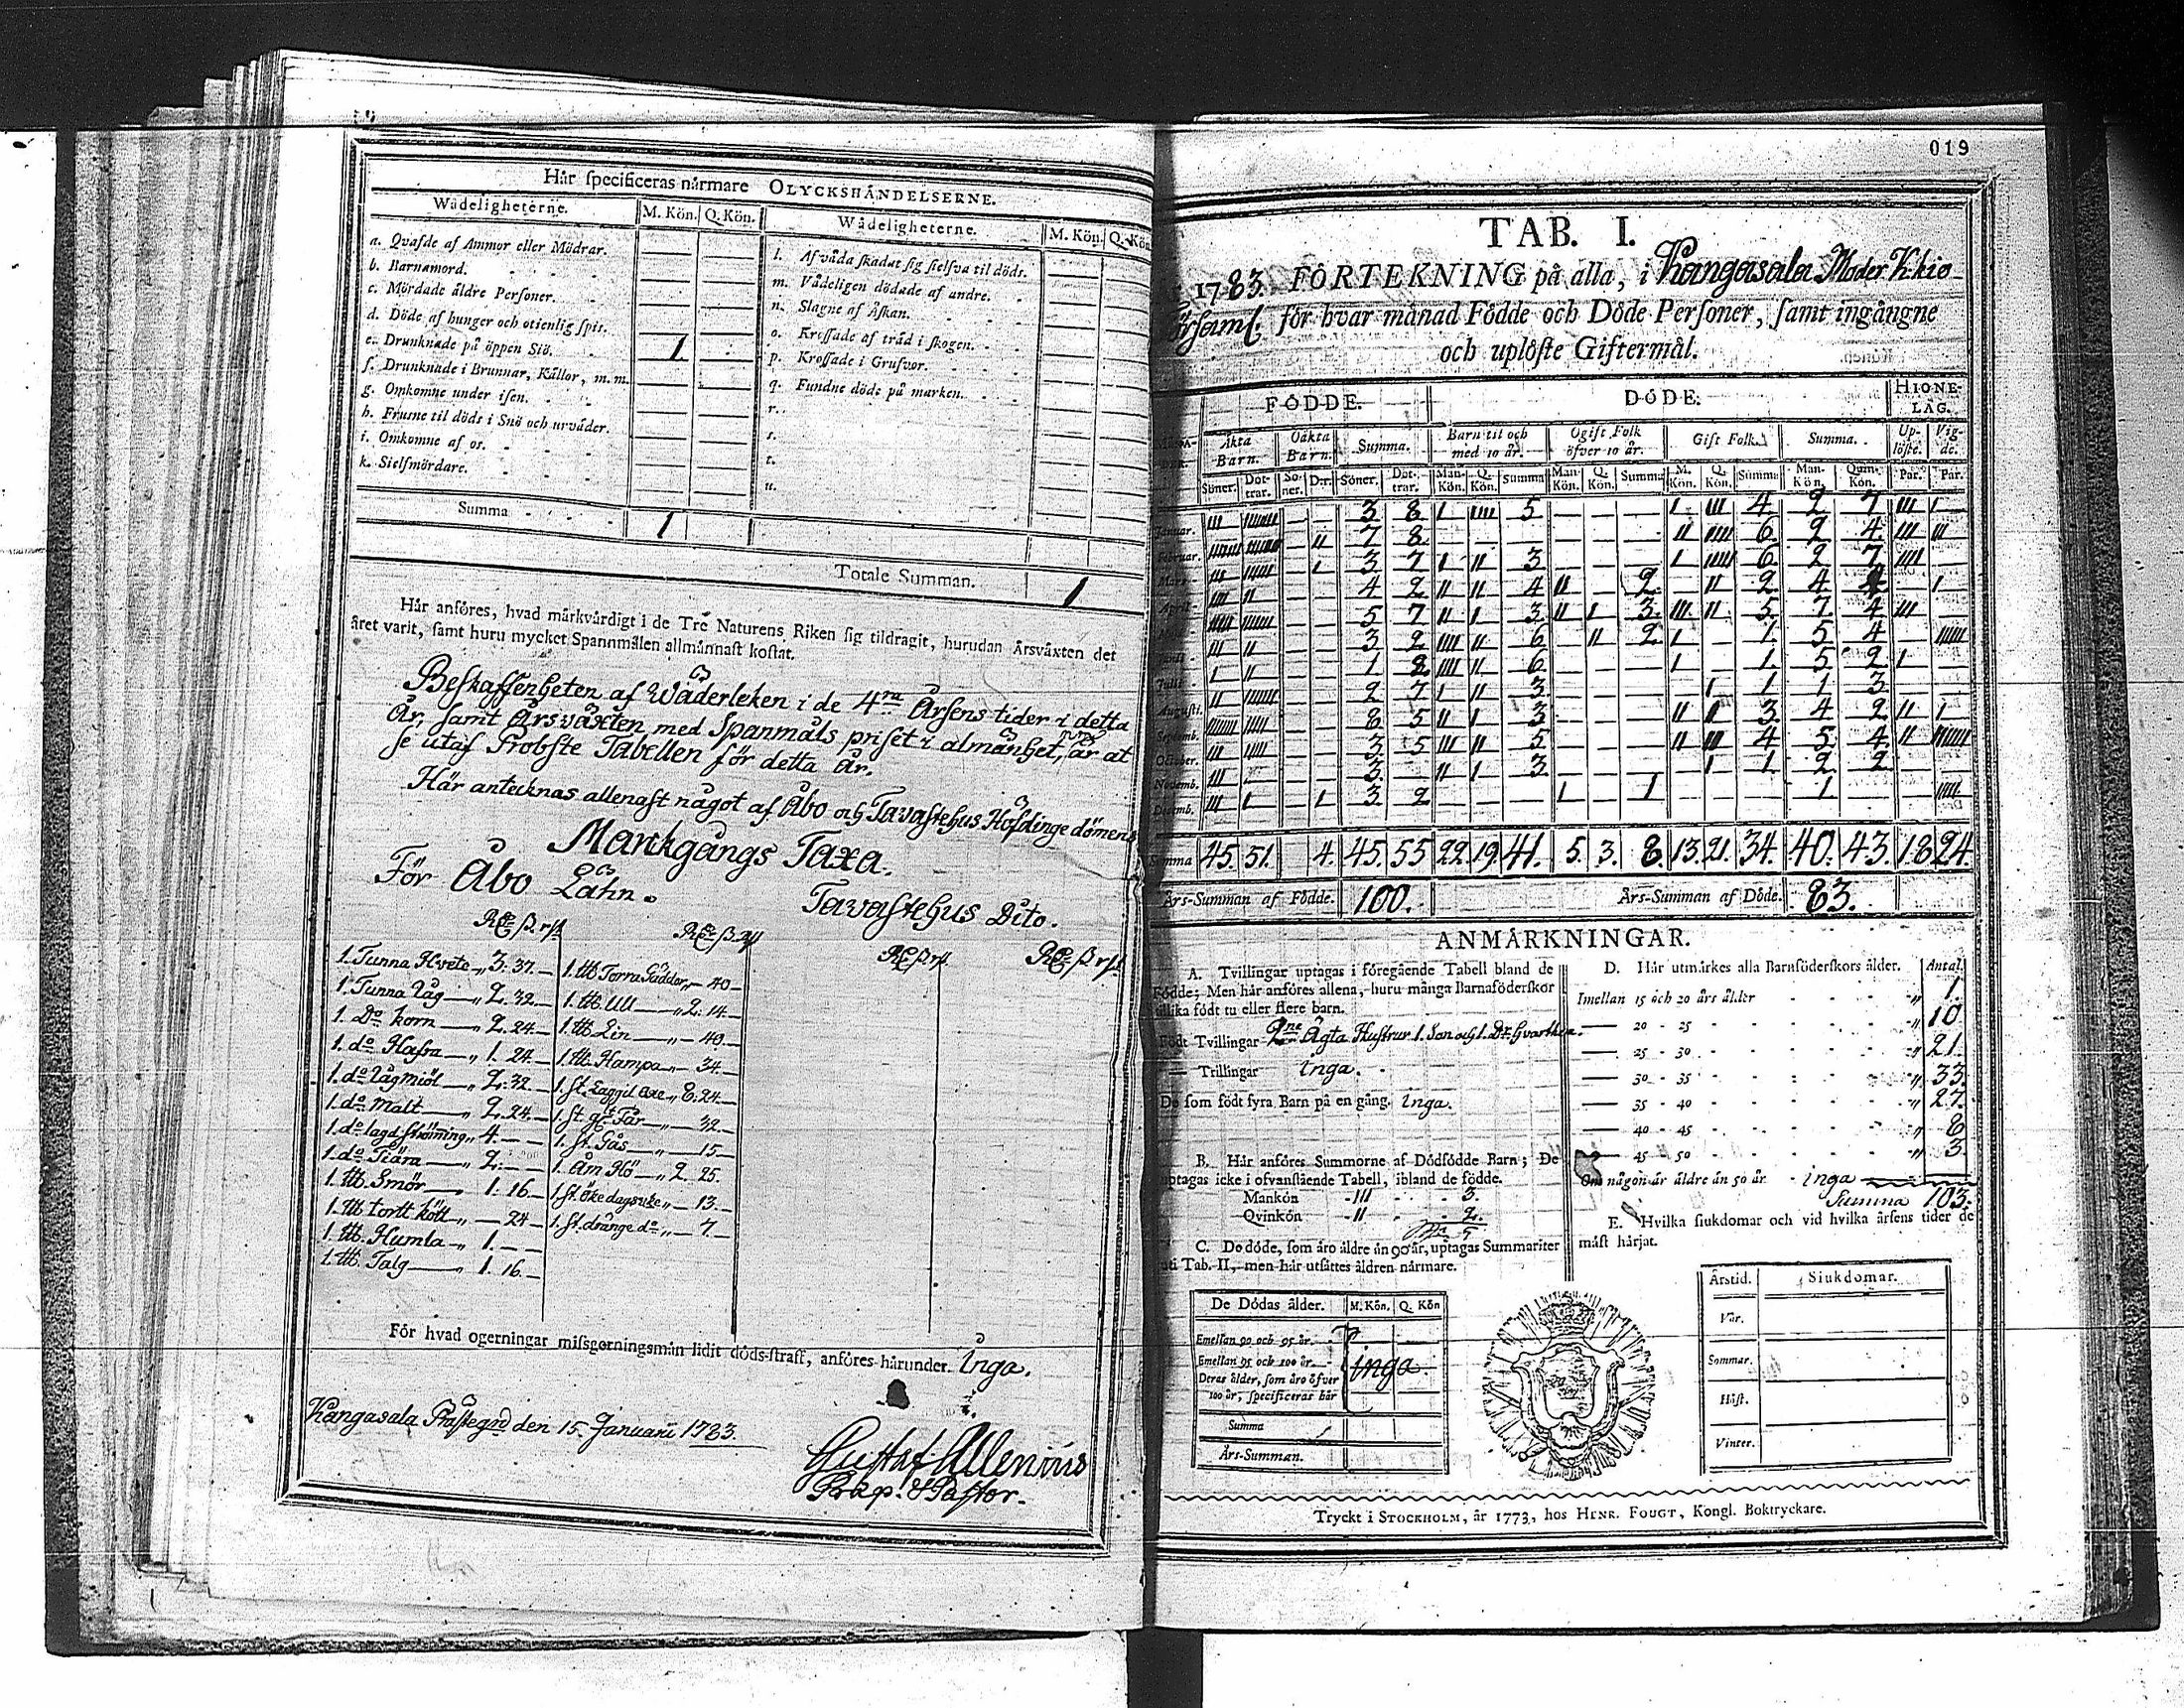 Hår specificeras nårmare OLYCKSHÅNDELSERNE.
Wådeligheterne. M. Kön. Q. Kön. Wådeligheterne. M. Kön. Q. Kön
a. Qvafde af Ammor eller Mödrar.
b. Barnamord.
c. Mördade åldre Personer.
d. Döde af hunger och otienlig spis.
e. Drunknade på öppen Siö. 1
f. Drunknade i Brunnar, Kållor, m. m.
g. Omkomne under isen.
h. Frusne til döds i Snö och urvåder.
i. Omkomne af os.
k. Sielfmördare.
l. Af våda skadat sig sielfva til döds.
m. Vådeligen dödade af andre.
n. Slagne af Åskan.
o. Krossade af tråd i skogen.
p. Krossade i Grufvor.
q. Fundne döde på marken.
r.
s.
t.
u.
Summa 1
Totale Summan. 1
Hår anföres, hvad mårkvårdigt i de Tre Naturens Riken sig tildragit, hurudan Årsvåxten det
året varit, samt huru mycket Spannmålen allmånnast kostat.
Beskaffenheten af Wäderleken i de 4ra Årsens tider i detta
År, samt Årsväxten, med Spanmåls priset i almänhet, är at
se utaf Probste Tabellen för detta år.
Här antecknas allenast något af Åbo och Tavastehus Höfdinge dömens
Markgångs Taxa.
För Åbo Lähn. Tavastehus Dito.
1. Tunna Hvete 3. 37. 1. ttb Torra Gäddor 40
1. Tunna Råg 2. 32. 1. ttb. Ull 2. 14.
1. Do korn 2. 24. 1. ttb Lin 40.
1. do Hafra 1. 24. 1. ttb. Hampa 34.
1. do Rågmiöl 2. 32. 1. st. Laggil Oxe 8. 24.
1. do Malt 2. 24. 1. st. Får 32.
1. do lagd strömming 4. 1. st. Gås 15.
1. do Tiära 2. 1. Åm Hö 2. 25.
1. ttb. Smör 1. 16. 1. st. öke dagsvke 13.
1. ttb tortt kött 24 1. st. dränge do 7.
1. ttb. Humla 1.
1. ttb. Talg 1. 16.
För hvad ogerningar missgerningsmån lidit döds-straff, anföres hårunder. Inga.
Kangasala Prästegrd den 15. Januarii 1783.
Gustaf Allenius
Præp. & Pastor.
019
TAB. I.
1783. FÖRTEKNING på alla, i Kangasala Moder Kkio
Församl. för hvar månad Födde och Döde Personer, samt ingångne
och uplöste Giftermål.
FÖDDE. DÖDE. HIONE-
LAG.
Åkta Barn. Oåkta Barn. Summa. Barn til och med 10 år. Ogift Folk öfver 10 år. Gift Folk. Summa. Up-löste. Vig-de.
Söner. Döt-trar. So-ner. D:r. Söner. Döt-trar. Man-Kön. Q. Kön. Summa Man-Kön. Q. Kön. Summa M. Kön. Q. Kön. Summa Man-Kön. Quin-Kön. Par. Par.
Januar. III IIIIIIII 3 8 I IIII 5 I III 4 2 7 III I
Februar. IIIIIII IIIIIIII II 7 8 II IIII 6 2 4 III III
Mars III IIIIII I 3 7 I II 3 I IIIII 6 2 7 IIII
April IIII II 4 2 II II 4 II 2 II 2 4 4 I
IIIII IIIIIII 5 7 II I 3 II I 3 III II 5 7 4 III
III II 3 2 IIII II 6 II 2 I 1 5 4 IIIII
Julii I II 1 2 IIII II 6 I 1 5 2 I
Augusti. II IIIIIII 2 7 I II 3 I 1 1 3
Septemb. IIIIIIII IIIII 8 5 II I 3 II I 3 4 2 II I
October. III IIIII 3 5 III II 5 II II 4 5 4 II IIIIIII
Novemb. III 3 II I 3 I 1 2 2
Decemb. III I I 3 2 I 1 1 IIIII
Summa 45. 51. 4. 45. 55 22. 19. 41. 5. 3. 8. 13. 21. 34. 40. 43. 18 24
Års-Summan af Födde. 100. Års-Summan af Döde. 83.
ANMÅRKNINGAR.
A. Tvillingar uptagas i föregående Tabell bland de
Födde; Men hår anföres allena, huru många Barnaföderskor
tillika födt tu eller flere barn.
Födt Tvillingar 2ne Ägta Hustrur 1. Son och 1. Dr. hvarthera.
Trillingar inga.
De som födt fyra Barn på en gång. inga.
B. Hår anföres Summorne af Dödfödde Barn; De
uptagas icke i ofvanstående Tabell, ibland de födde.
Mankön III 3.
Qvinkön II 2.
5
C. De döde, som åro åldre ån 90 år, uptagas Summariter
uti Tab. II, men hår utsåttes åldren nårmare.
De Dödas ålder. M. Kön. Q. Kön
Emellan 90 och 95 år.
Emellan 95 och 100 år. inga
Deras ålder, som åro öfver
100 år, specificeras hår
Summa
Års-Summan.
D. Hår utmårkes alla Barnföderskors ålder. Antal.
Imellan 15 och 20 års ålder 1.
20 - 25 10
25 - 30 21.
30 - 35 33.
35 - 40 27.
40 - 45 8
45 - 50 3.
Om någon år åldre ån 50 år inga
Summa 103.
E. Hvilka siukdomar och vid hvilka årsens tider de
måst hårjat.
Årstid. Siukdomar.
Vår.
Sommar.
Höst.
Vinter.
Tryckt i STOCKHOLM, år 1773, hos HENR. FOUGT, Kongl. Boktryckare.